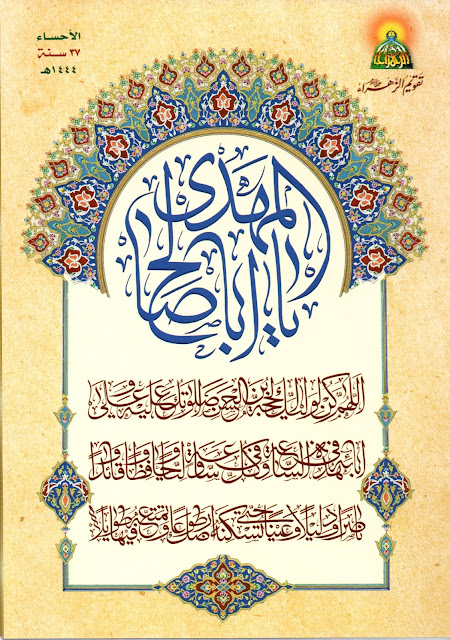 الأحساء
٣٧ سنة
١٤٤٤هـ
تقويم الزهراء
يا اباصالح المهدى
اللهم كن لوليك الحجة بن الحسن صلواتك عليه وعلى
آبائه في هذه الساعة وفي كل ساعة وليا وحافظا وقائدا و
ناصرا ودليلا وعينا حتى تسكنه أرضك طوعا وتمتعه فيها طويلا